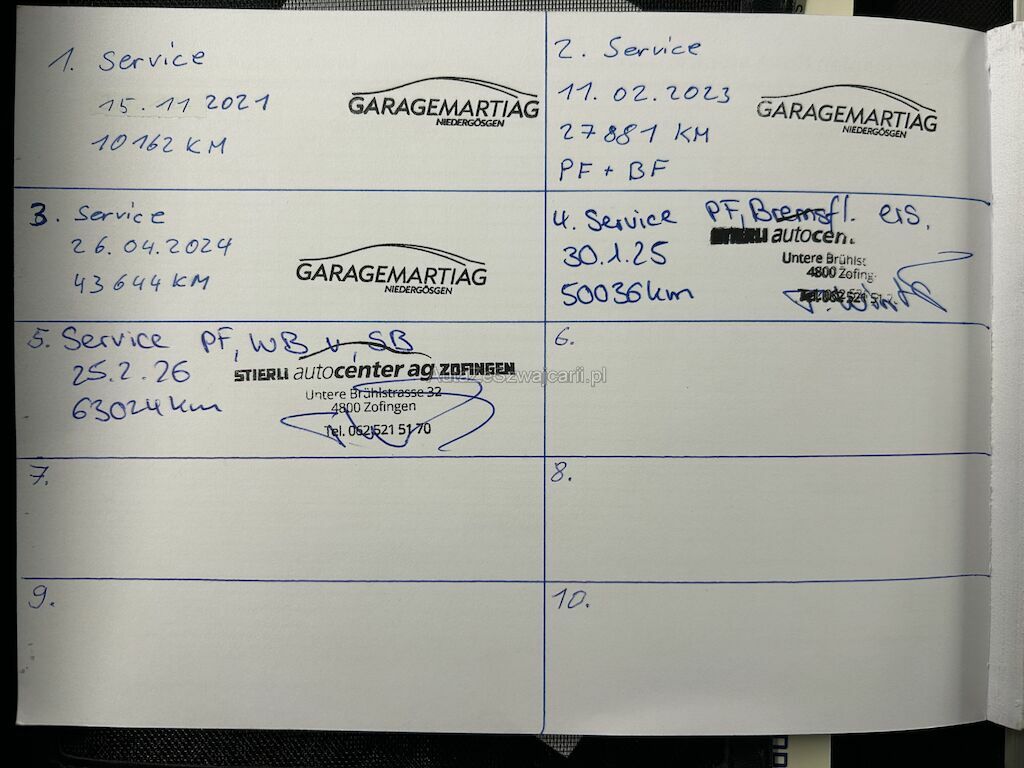 1. Service
15.11 2021
10162 KM
GARAGEMARTIAG
NIEDERGÖSGEN
2. Service
11. 02. 2023
27881 KM
PF + BF
GARAGEMARTIAG
NIEDERGÖSGEN
3. Service
26. 04. 2024
43644 KM
GARAGEMARTIAG
NIEDERGÖSGEN
4. Service PF, Bremsfl. ers.
30.1.25
50036km
STIERLI autocen
Untere Brühlst
4800 Zofing
Tel. 062 521 51 7
5. Service PF, WB v, SB
25.2.26
63024km
STIERLI autocenter ag ZOFINGEN
Untere Brühlstrasse 32
4800 Zofingen
Tel. 062 521 51 70
AutazeSzwajcarii.pl
6.
7.
8.
9.
10.